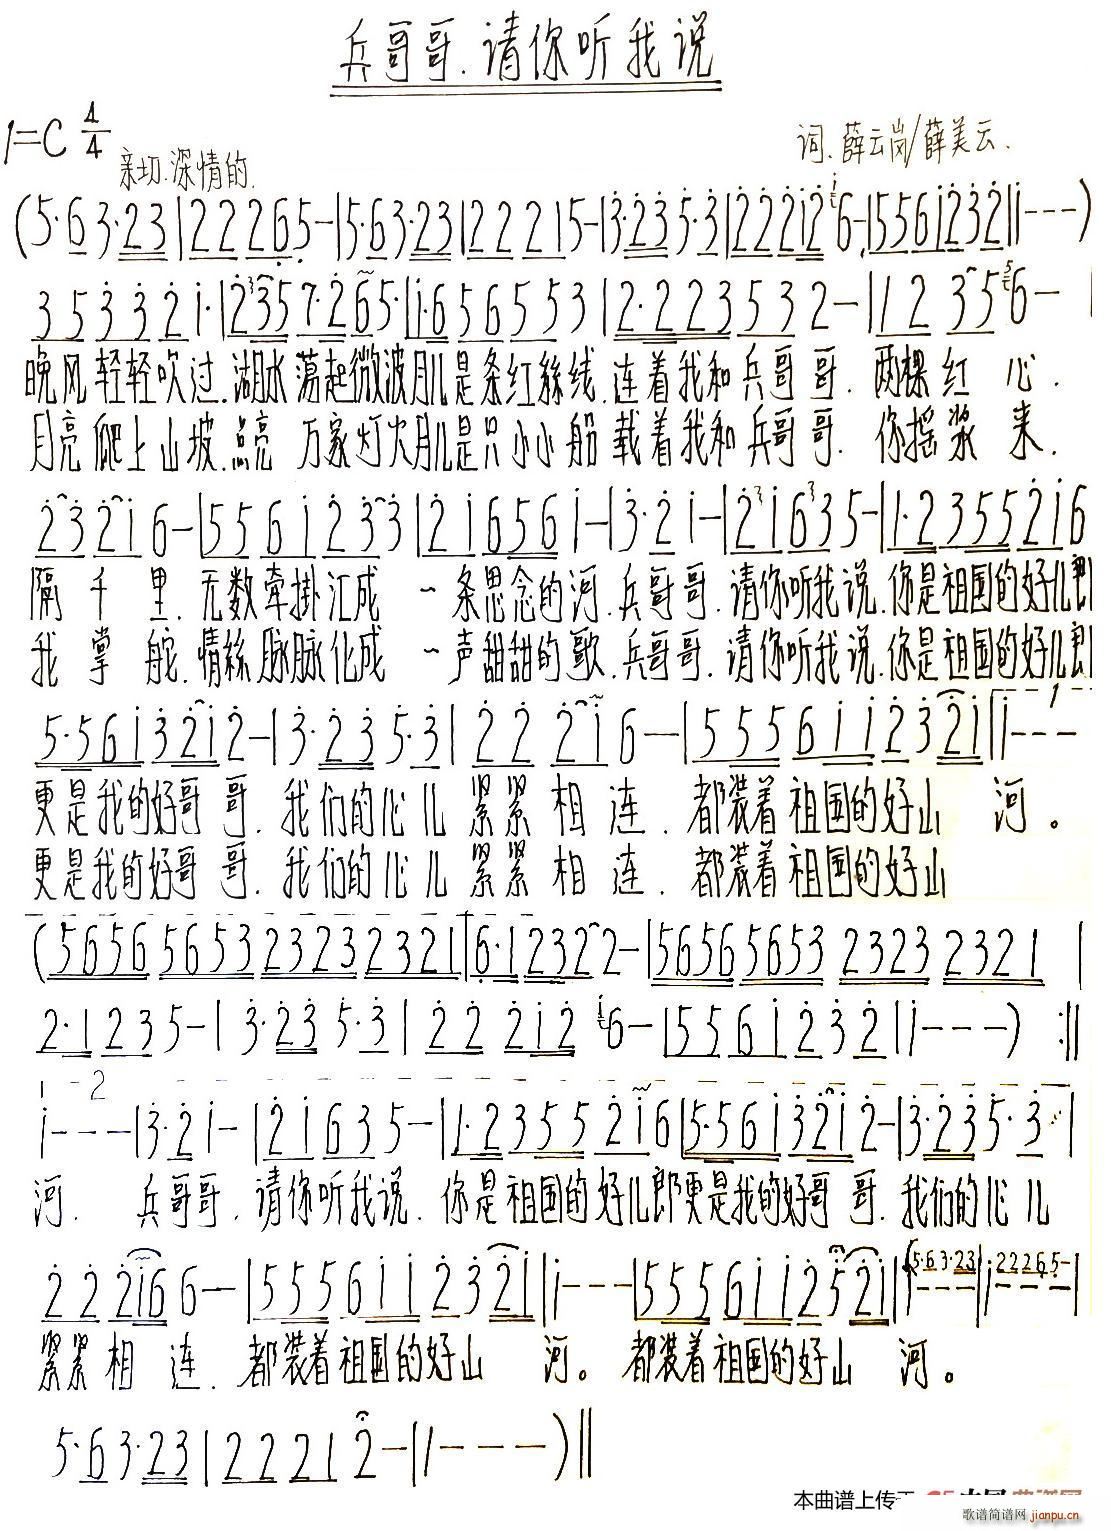 兵哥哥.请你听我说
1=C 4/4
词.薛云岗/薛美云.
亲切.深情的.
(5·6 3·23|2 2 2 6 5-|5·6 3·23|2 2 2 1 5-|3·23 5·3|2 2 2 1 2 6-|5 5 6 1 2 3 2|1---)
3 5 3 3 2 1·|2 3 5 7·2 6 5·|1·6 5 6 5 5 3|2·2 2 3 5 3 2-|1 2 3 5 6-|
晚风轻轻吹过.湖水荡起微波月儿是条红絲线.连着我和兵哥哥.两棵红心.
月亮爬上山坡.点亮万家灯火月儿是只小小船载着我和兵哥哥.你摇浆来.
2 3 2 1 6-|5 5 6 1 2 3 3|2 1 6 5 6 1-|3·2 1-|2 1 6 3 5-|1·2 3 5 5 2 1 6
隔千里.无数牵掛汇成一条思念的河.兵哥哥.请你听我说.你是祖国的好儿郎
我掌舵.情絲脉脉化成一声甜甜的歌.兵哥哥.请你听我说.你是祖国的好儿郎
5·5 6 1 3 2 1 2-|3·2 3 5·3|2 2 2 1 6--|5 5 5 6 1 1 2 3 2 1|1---
更是我的好哥哥.我们的心儿紧紧相连.都装着祖国的好山河。
更是我的好哥哥.我们的心儿紧紧相连.都装着祖国的好山
(5656 5653 2323 2321|6·1 2 3 2 2-|5656 5653 2323 2321|
2·1 2 3 5-|3·23 5·3|2 2 2 1 2 6-|5 5 6 1 2 3 2|1---) :||
1---|3·2 1-|2 1 6 3 5-|1·2 3 5 5 2 1 6|5·5 6 1 3 2 1 2-|3·2 3 5·3|
河.兵哥哥.请你听我说.你是祖国的好儿郎更是我的好哥哥.我们的心儿
2 2 2 1 6 6--|5 5 5 6 1 1 2 3 2 1|1---|5 5 5 6 1 1 2 5 2 1|(5·6 3·23 1---|2 2 2 6 5- 1---|
紧紧相连.都装着祖国的好山河。都装着祖国的好山河。
5·6 3·23|2 2 2 1 2-|1---)||
本曲谱上传于
歌谱简谱网 jianpu.cn